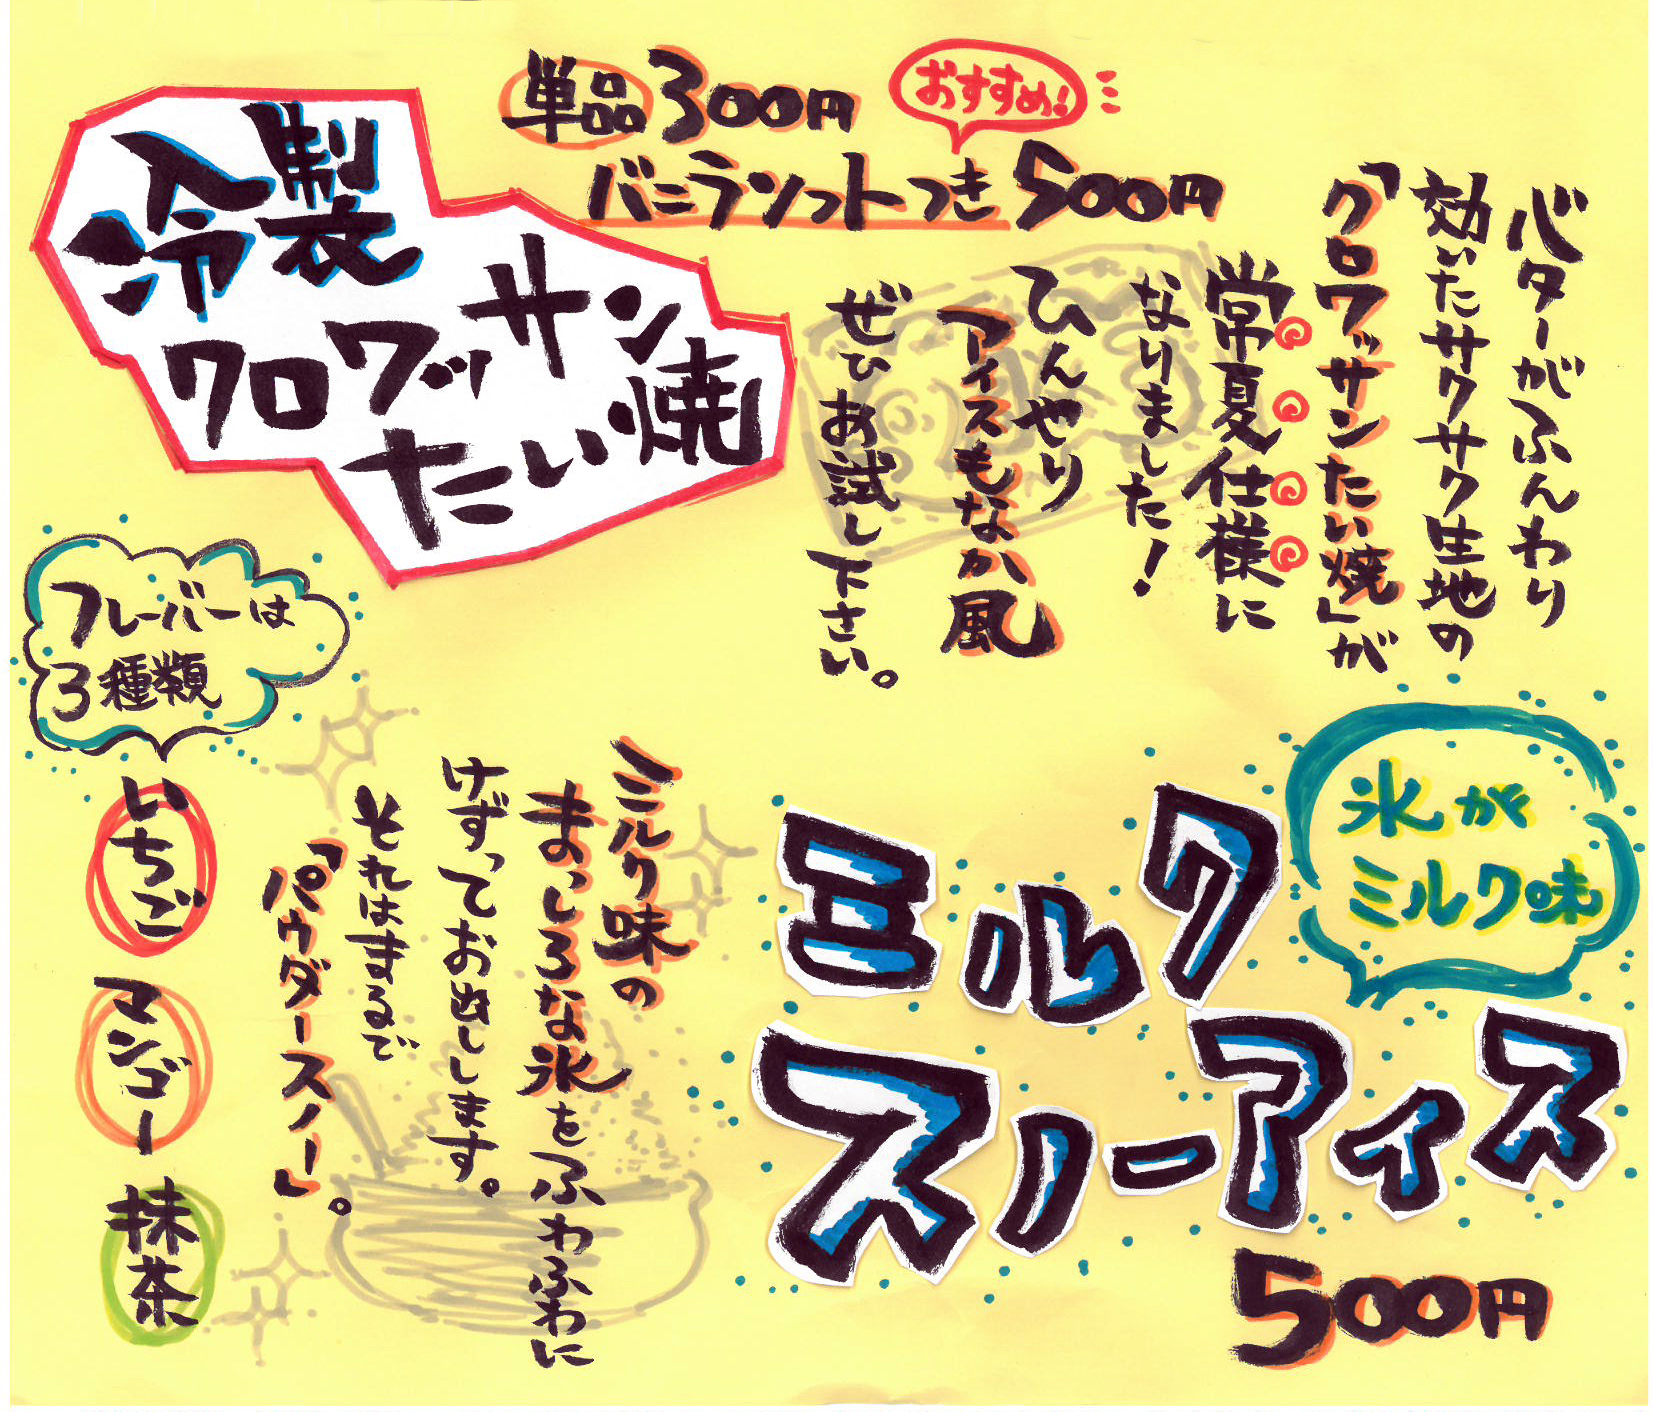 冷製
クロワッサン
たい焼
単品300円
おすすめ!
バニラソフトつき500円
バターがふんわり
効いたサクサク生地の
「クロワッサンたい焼」が
常夏仕様に
なりました!
ひんやり
アイスもなか風
ぜひお試し下さい。
氷が
ミルク味
ミルク
スノーアイス
500円
ミルク味の
まっしろな氷をふわふわに
けずってお出しします。
それはまるで
「パウダースノー」。
フレーバーは
3種類
いちご
マンゴー
抹茶